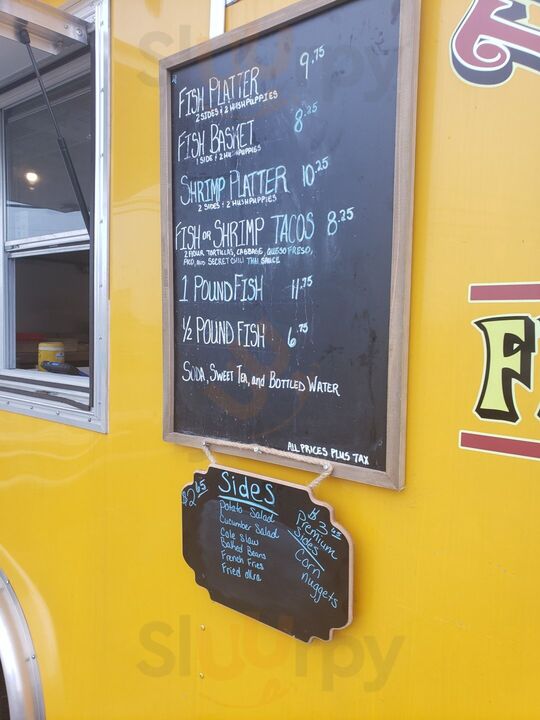 FISH PLATTER 9.75
2 SIDES & 2 HUSHPUPPIES
FISH BASKET 8.25
1 SIDE & 2 HUSHPUPPIES
SHRIMP PLATTER 10.25
2 SIDES & 2 HUSHPUPPIES
FISH OR SHRIMP TACOS 8.25
2 FLOUR TORTILLAS, CABBAGE, QUESO FRESO,
PICO, AND SECRET CHILI THAI SAUCE
1 POUND FISH 11.75
½ POUND FISH 6.75
SODA, SWEET TEA, and BOTTLED WATER
ALL PRICES PLUS TAX
$2.65 Sides
Potato Salad
Cucumber Salad
Cole slaw
Baked Beans
French Fries
Fried okra
Premium
Sides
Corn
nuggets
F
Sluurpy
Sluurpy